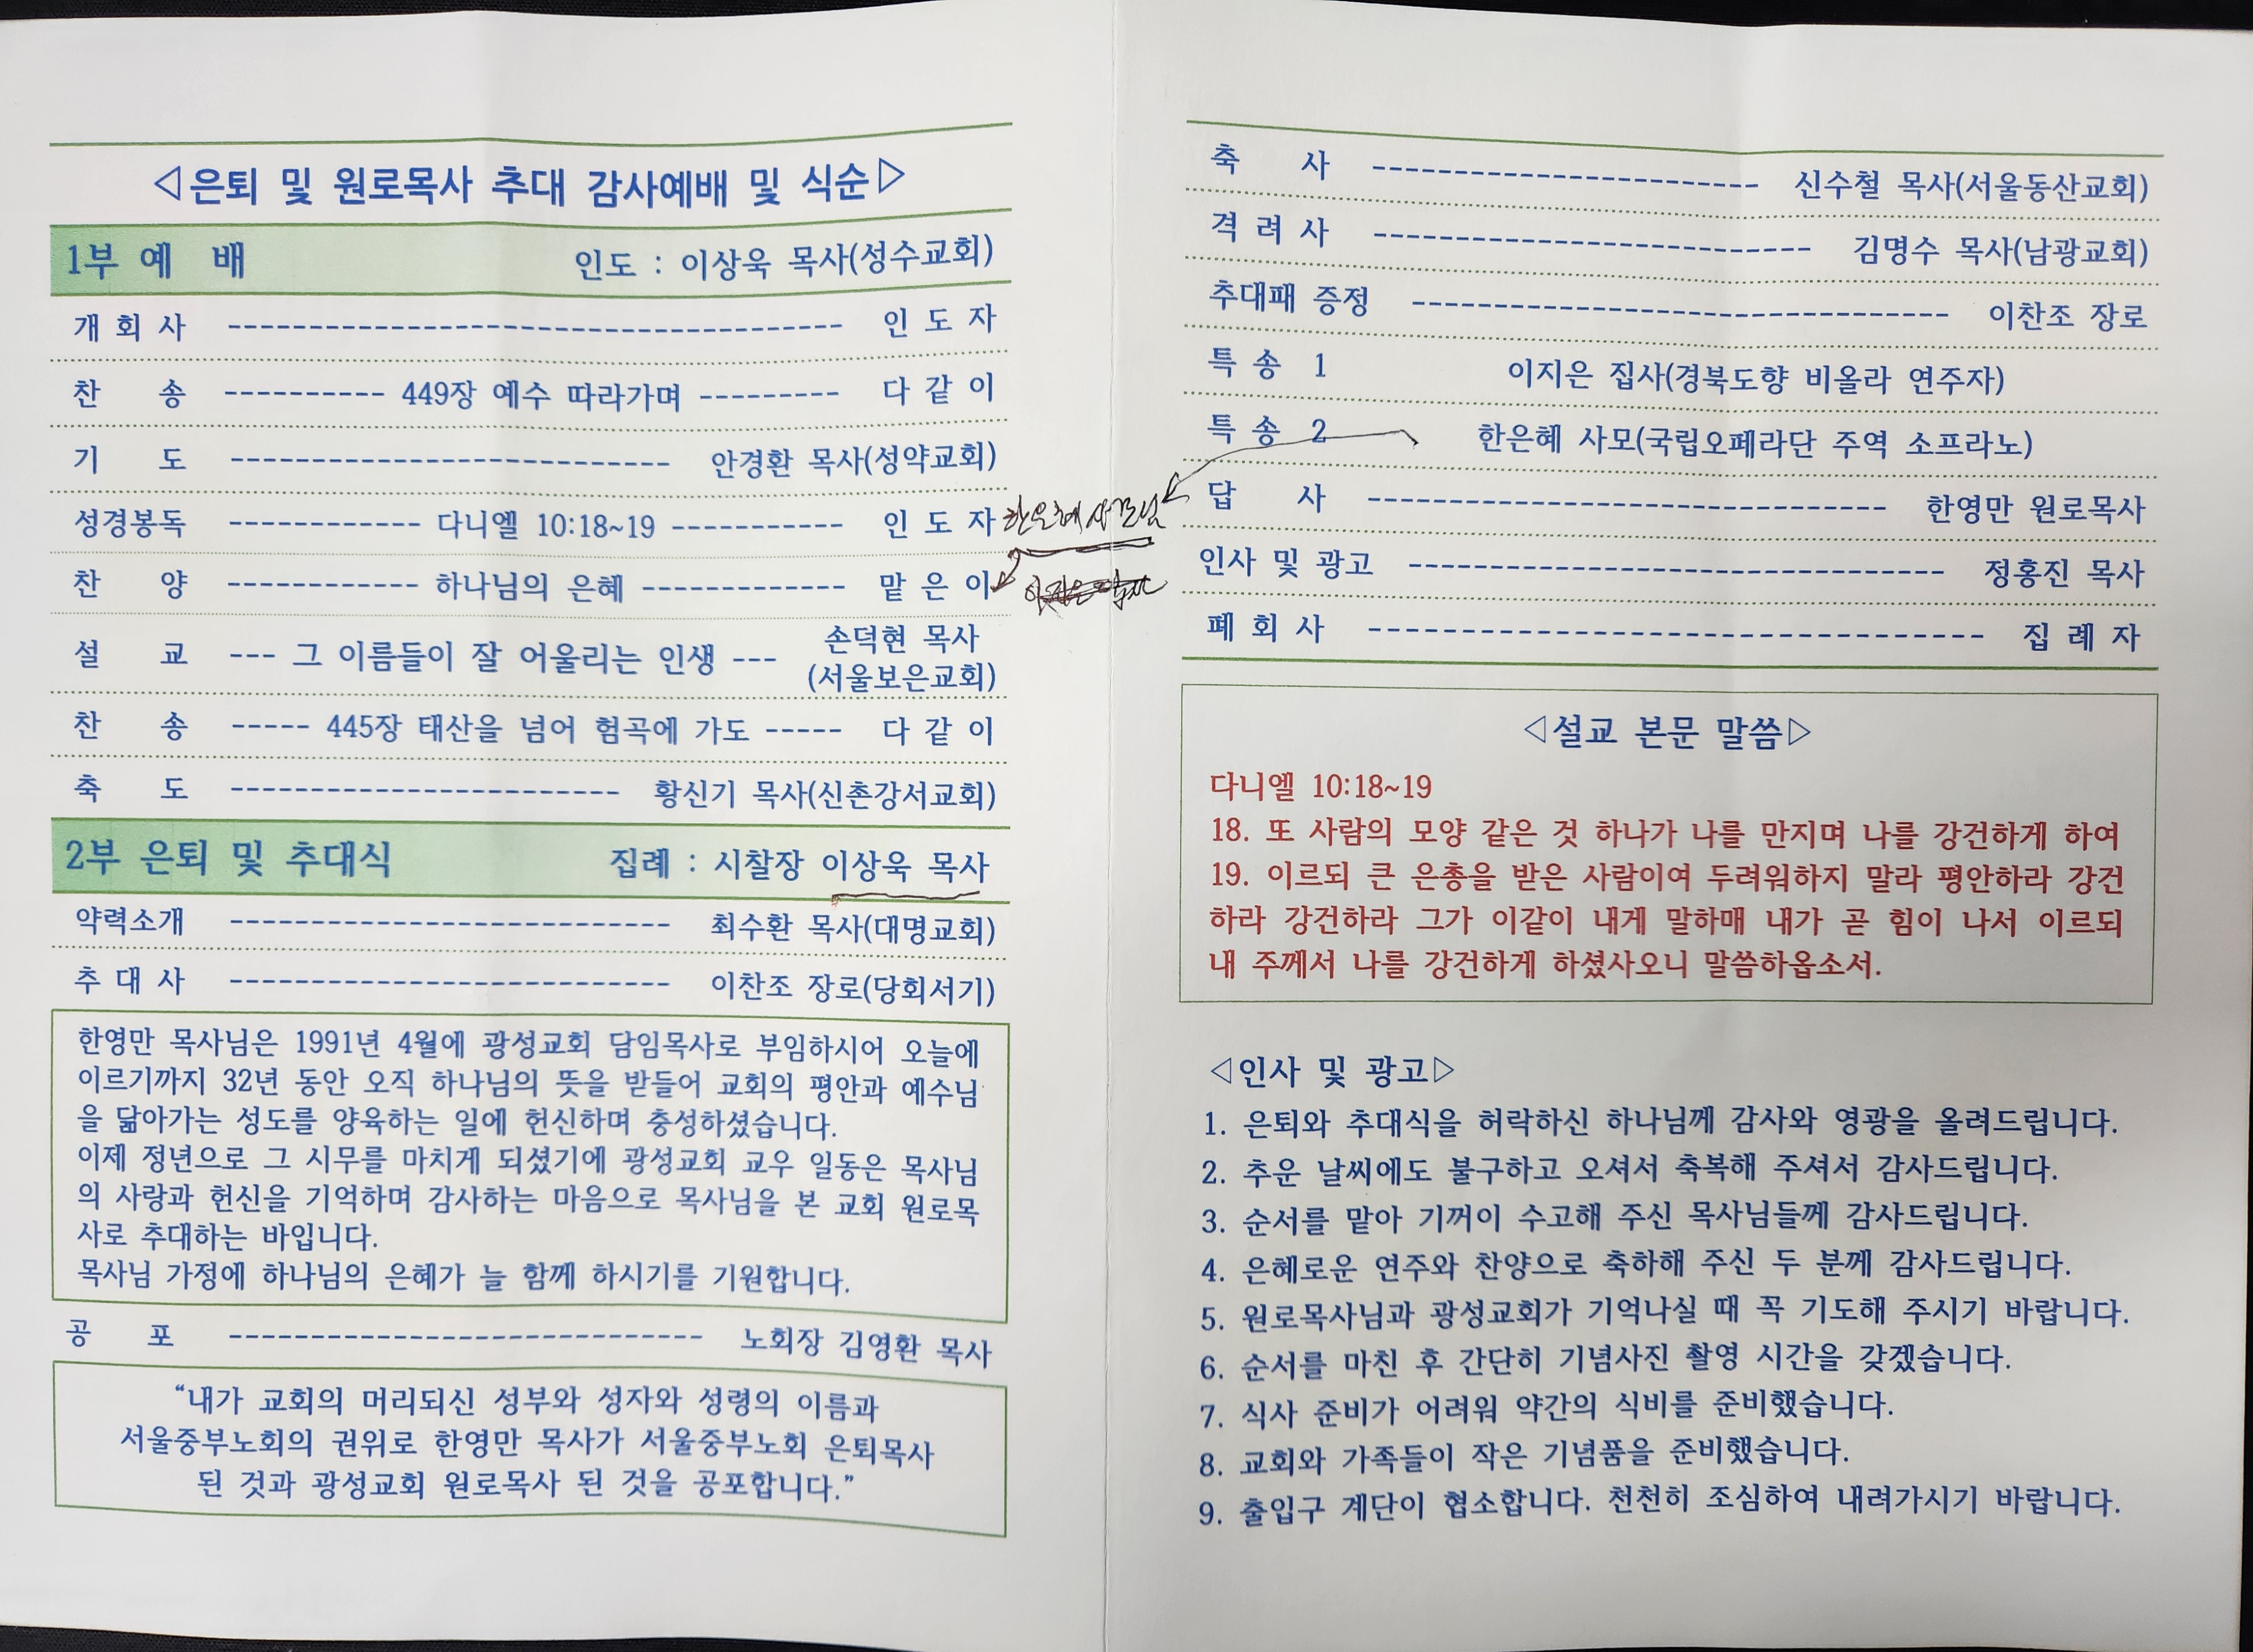 ◁은퇴 및 원로목사 추대 감사예배 및 식순▷
1부 예 배 인도 : 이상욱 목사(성수교회)
개 회 사 ------------------------------------- 인 도 자
찬 송 ---------- 449장 예수 따라가며 --------- 다 같 이
기 도 --------------------------- 안경환 목사(성약교회)
성경봉독 ------------ 다니엘 10:18~19 ----------- 인 도 자 한은혜 사모님
찬 양 ------------ 하나님의 은혜 ------------- 맡 은 이
설 교 --- 그 이름들이 잘 어울리는 인생 --- 손덕현 목사
(서울보은교회)
찬 송 ----- 445장 태산을 넘어 험곡에 가도 ----- 다 같 이
축 도 ------------------------ 황신기 목사(신촌강서교회)
2부 은퇴 및 추대식 집례 : 시찰장 이상욱 목사
약력소개 --------------------------- 최수환 목사(대명교회)
추 대 사 --------------------------- 이찬조 장로(당회서기)
한영만 목사님은 1991년 4월에 광성교회 담임목사로 부임하시어 오늘에
이르기까지 32년 동안 오직 하나님의 뜻을 받들어 교회의 평안과 예수님
을 닮아가는 성도를 양육하는 일에 헌신하며 충성하셨습니다.
이제 정년으로 그 시무를 마치게 되셨기에 광성교회 교우 일동은 목사님
의 사랑과 헌신을 기억하며 감사하는 마음으로 목사님을 본 교회 원로목
사로 추대하는 바입니다.
목사님 가정에 하나님의 은혜가 늘 함께 하시기를 기원합니다.
공 포 ----------------------------- 노회장 김영환 목사
“내가 교회의 머리되신 성부와 성자와 성령의 이름과
서울중부노회의 권위로 한영만 목사가 서울중부노회 은퇴목사
된 것과 광성교회 원로목사 된 것을 공포합니다.”
축 사 ------------------------ 신수철 목사(서울동산교회)
격 려 사 --------------------------- 김명수 목사(남광교회)
추대패 증정 --------------------------------- 이찬조 장로
특 송 1 이지은 집사(경북도향 비올라 연주자)
특 송 2 한은혜 사모(국립오페라단 주역 소프라노)
답 사 -------------------------------- 한영만 원로목사
인사 및 광고 --------------------------------- 정홍진 목사
폐 회 사 -------------------------------------- 집 례 자
◁설교 본문 말씀▷
다니엘 10:18~19
18. 또 사람의 모양 같은 것 하나가 나를 만지며 나를 강건하게 하여
19. 이르되 큰 은총을 받은 사람이여 두려워하지 말라 평안하라 강건
하라 강건하라 그가 이같이 내게 말하매 내가 곧 힘이 나서 이르되
내 주께서 나를 강건하게 하셨사오니 말씀하옵소서.
◁인사 및 광고▷
1. 은퇴와 추대식을 허락하신 하나님께 감사와 영광을 올려드립니다.
2. 추운 날씨에도 불구하고 오셔서 축복해 주셔서 감사드립니다.
3. 순서를 맡아 기꺼이 수고해 주신 목사님들께 감사드립니다.
4. 은혜로운 연주와 찬양으로 축하해 주신 두 분께 감사드립니다.
5. 원로목사님과 광성교회가 기억나실 때 꼭 기도해 주시기 바랍니다.
6. 순서를 마친 후 간단히 기념사진 촬영 시간을 갖겠습니다.
7. 식사 준비가 어려워 약간의 식비를 준비했습니다.
8. 교회와 가족들이 작은 기념품을 준비했습니다.
9. 출입구 계단이 협소합니다. 천천히 조심하여 내려가시기 바랍니다.